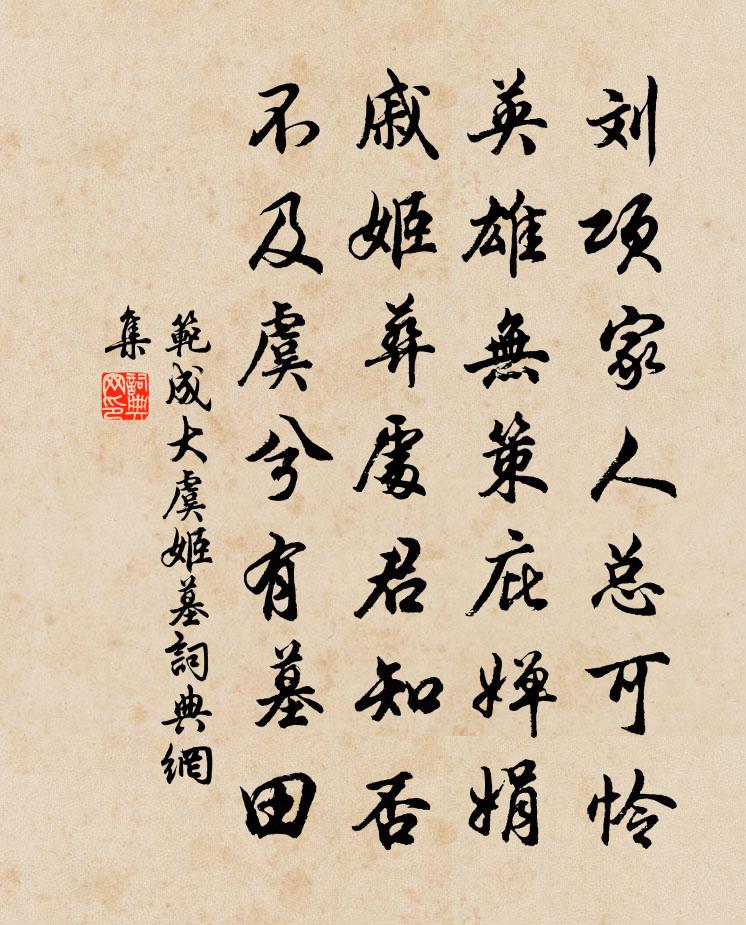 刘项家人总可怜
英雄無策庇婵娟
戚姬葬處君知否
不及虞兮有墓田
範成大虞姬墓詞典網
集
詞典网印